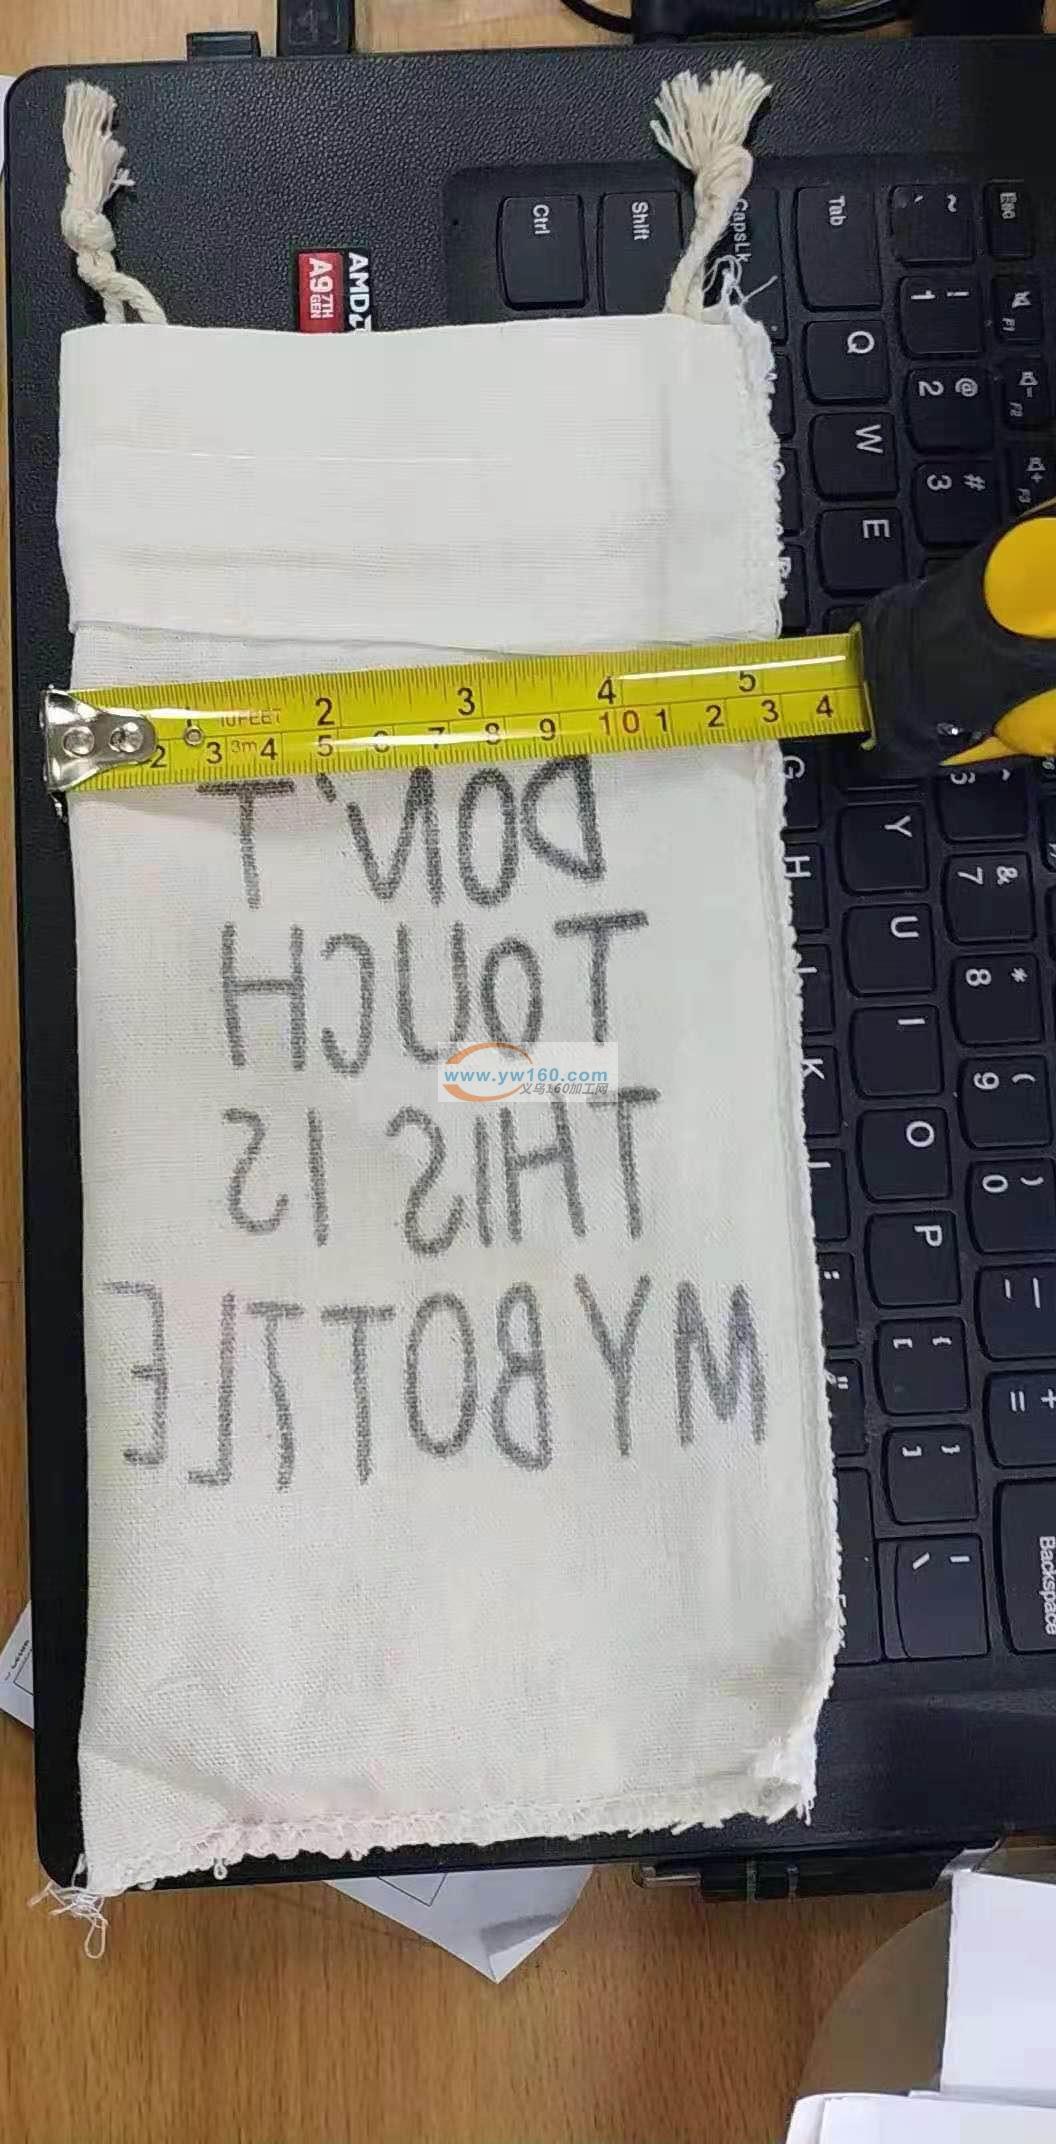 AMD
A9 7TH GEN
Ctrl
Shift
CapsLk
Tab
~ `
Esc
! 1
F1
Q
@ 2
F2
W
# 3
F3
E
1 2 3 4 5
10FEET
2 3 3m 4 5 6 7 8 9 10 1 2 3 4
DON'T
TOUCH
THIS IS
MY BOTTLE
www.yw160.com
义乌160加工网
G
^ 6
Y
H
& 7
U
* 8
I
K
( 9
O
) 0
P
: ;
{ [
+ =
" '
} ]
Backspace
| \